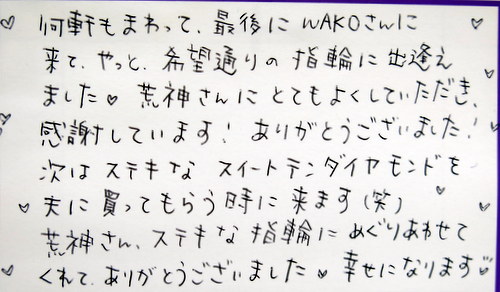 何軒もまわって、最後に WAKOさんに
来て、やっと、希望通りの指輪に出逢え
ました♥ 荒神さんにとてもよくしていただき、
感謝しています! ありがとうございました!
次は ステキな スイートテンダイヤモンドを
夫に買ってもらう時に来ます(笑)
荒神さん、ステキな指輪にめぐりあわせて
くれて、ありがとうございました♥ 幸せになります♥